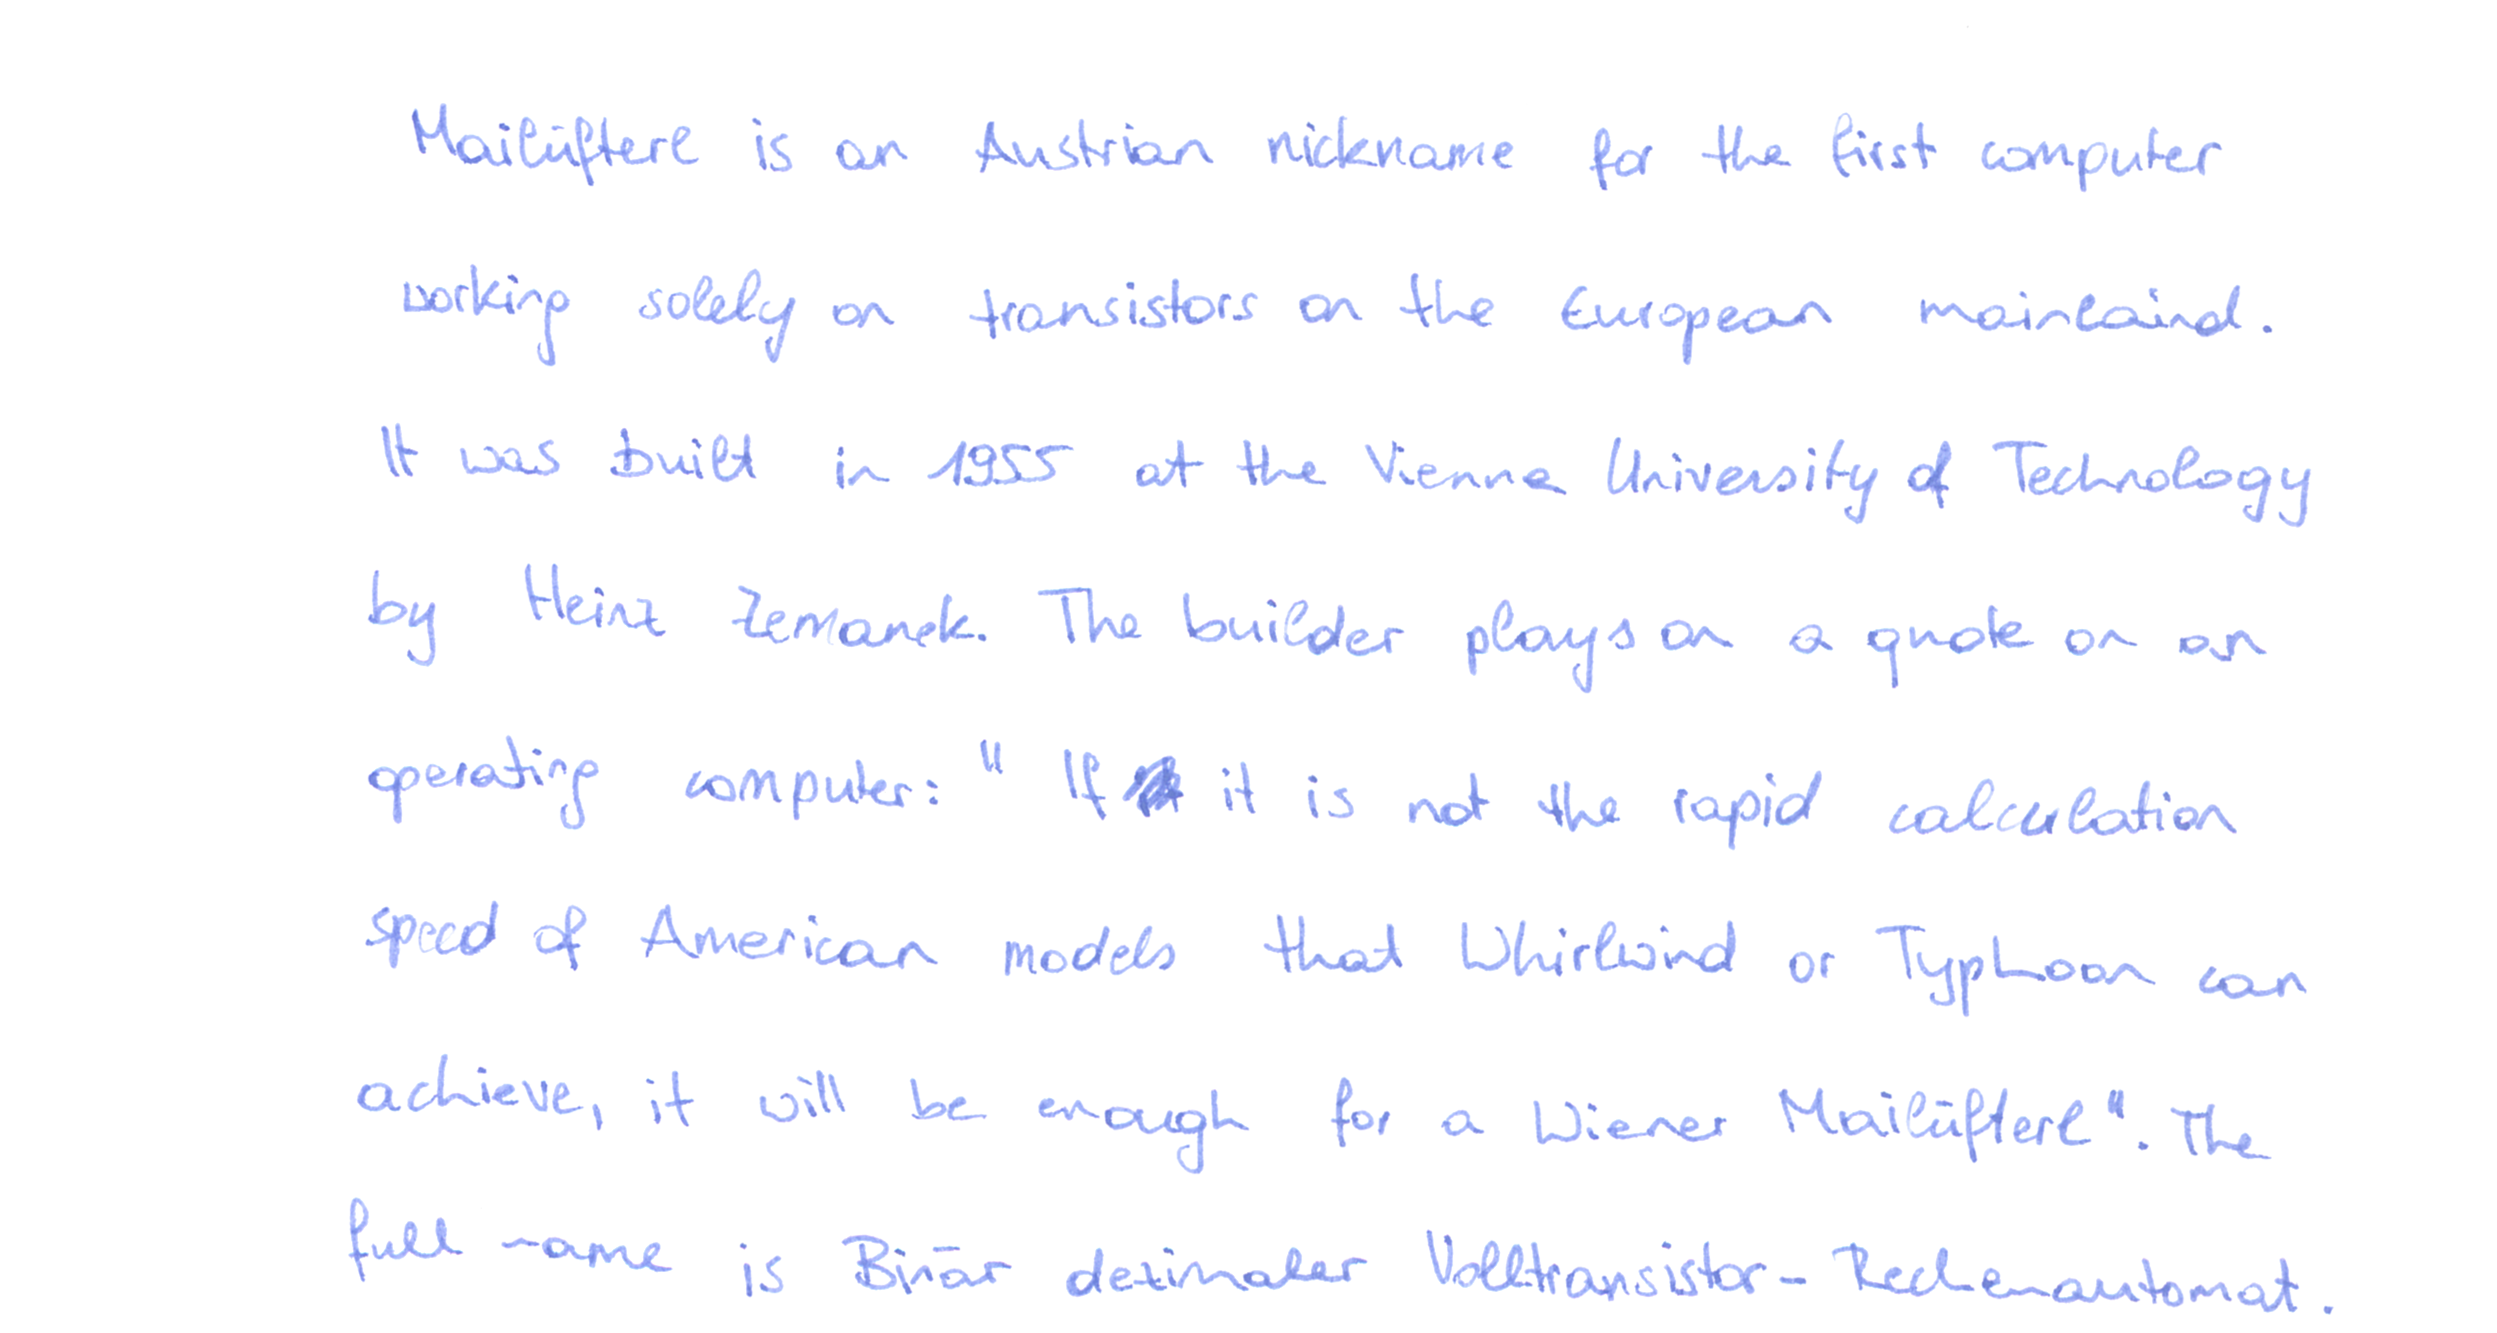 Mailüfterl is an Austrian nickname for the first computer
working solely on transistors on the European mainlaind.
It was built in 1955 at the Vienna University of Technology
by Heinz Zemanek. The builder plays on a quote on an
operating computer: " If it is not the rapid calculation
speed of American models that Whirlwind or Typhoon can
achieve, it will be enough for a Wiener Mailüfterl". The
full name is Binär dezimaler Volltransistor- Rechenautomat.